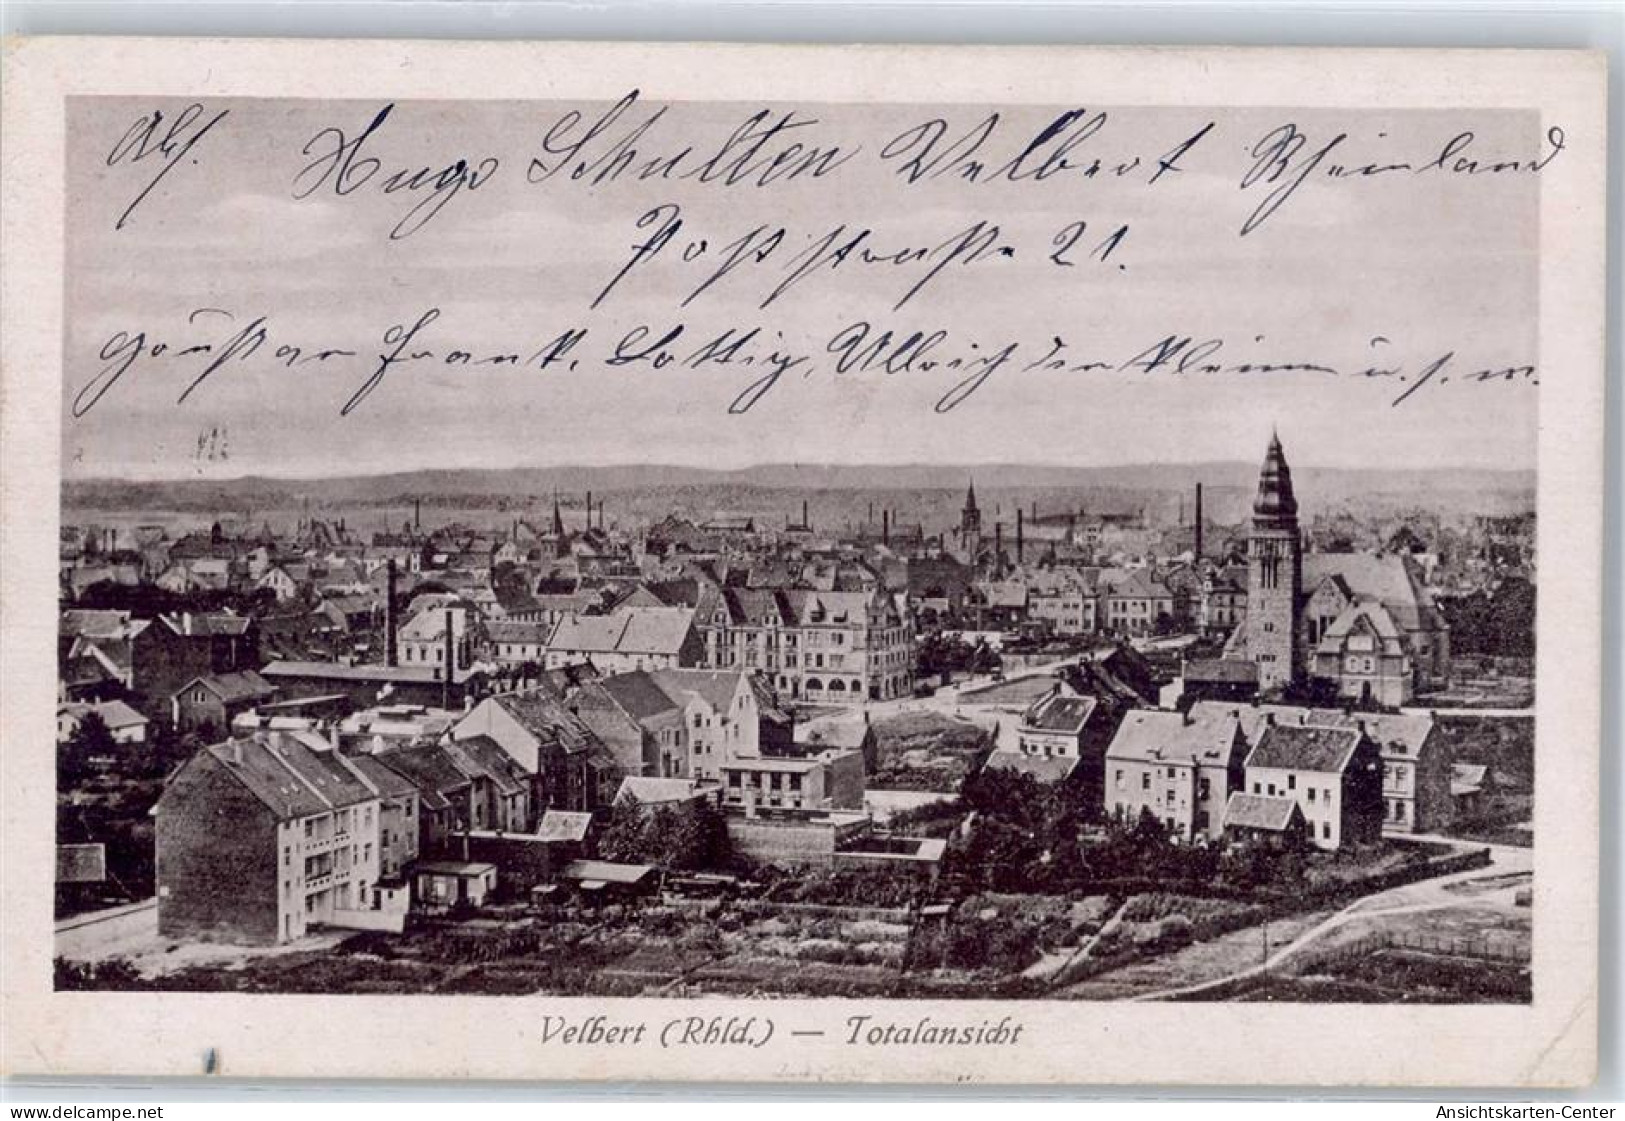 Abs. Hugo Schulten Velbert Rheinland
Poststraße 21.
Frank, Lottig, Ullrich der kleine u.s.w.
Velbert (Rhld.) — Totalansicht
www.delcampe.net
Ansichtskarten-Center